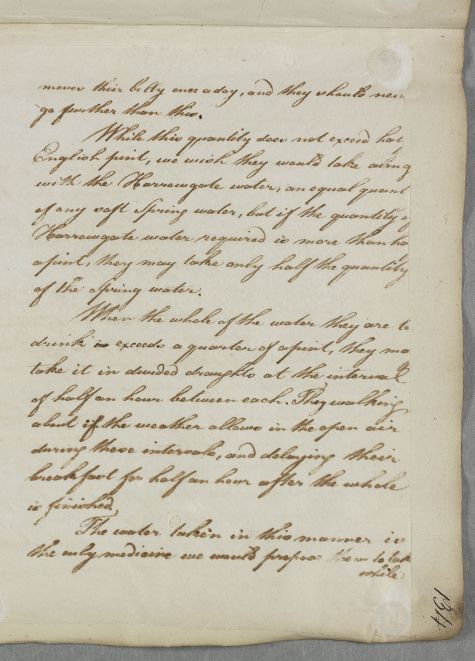 moves their belly once a day, and they should nev
go further than this.
While this quantity does not exceed hal
English pint, we wish they would take along
with the Harrowgate water, an equal quant
of any soft Spring water, but if the quantity of
Harrowgate water required is more than ha
a pint, they may take only half the quantity
of the Spring water.
When the whole of the water they are to
drink is exceeds a quarter of a pint, they ma
take it in divided draughts at the interval
of half an hour between each. They walking
about if the weather allows in the open air
during these intervals, and delaying their
breakfast for half an hour after the whole
is finished
The water taken in this manner is
the only medicine we would propose them to tak
while
134